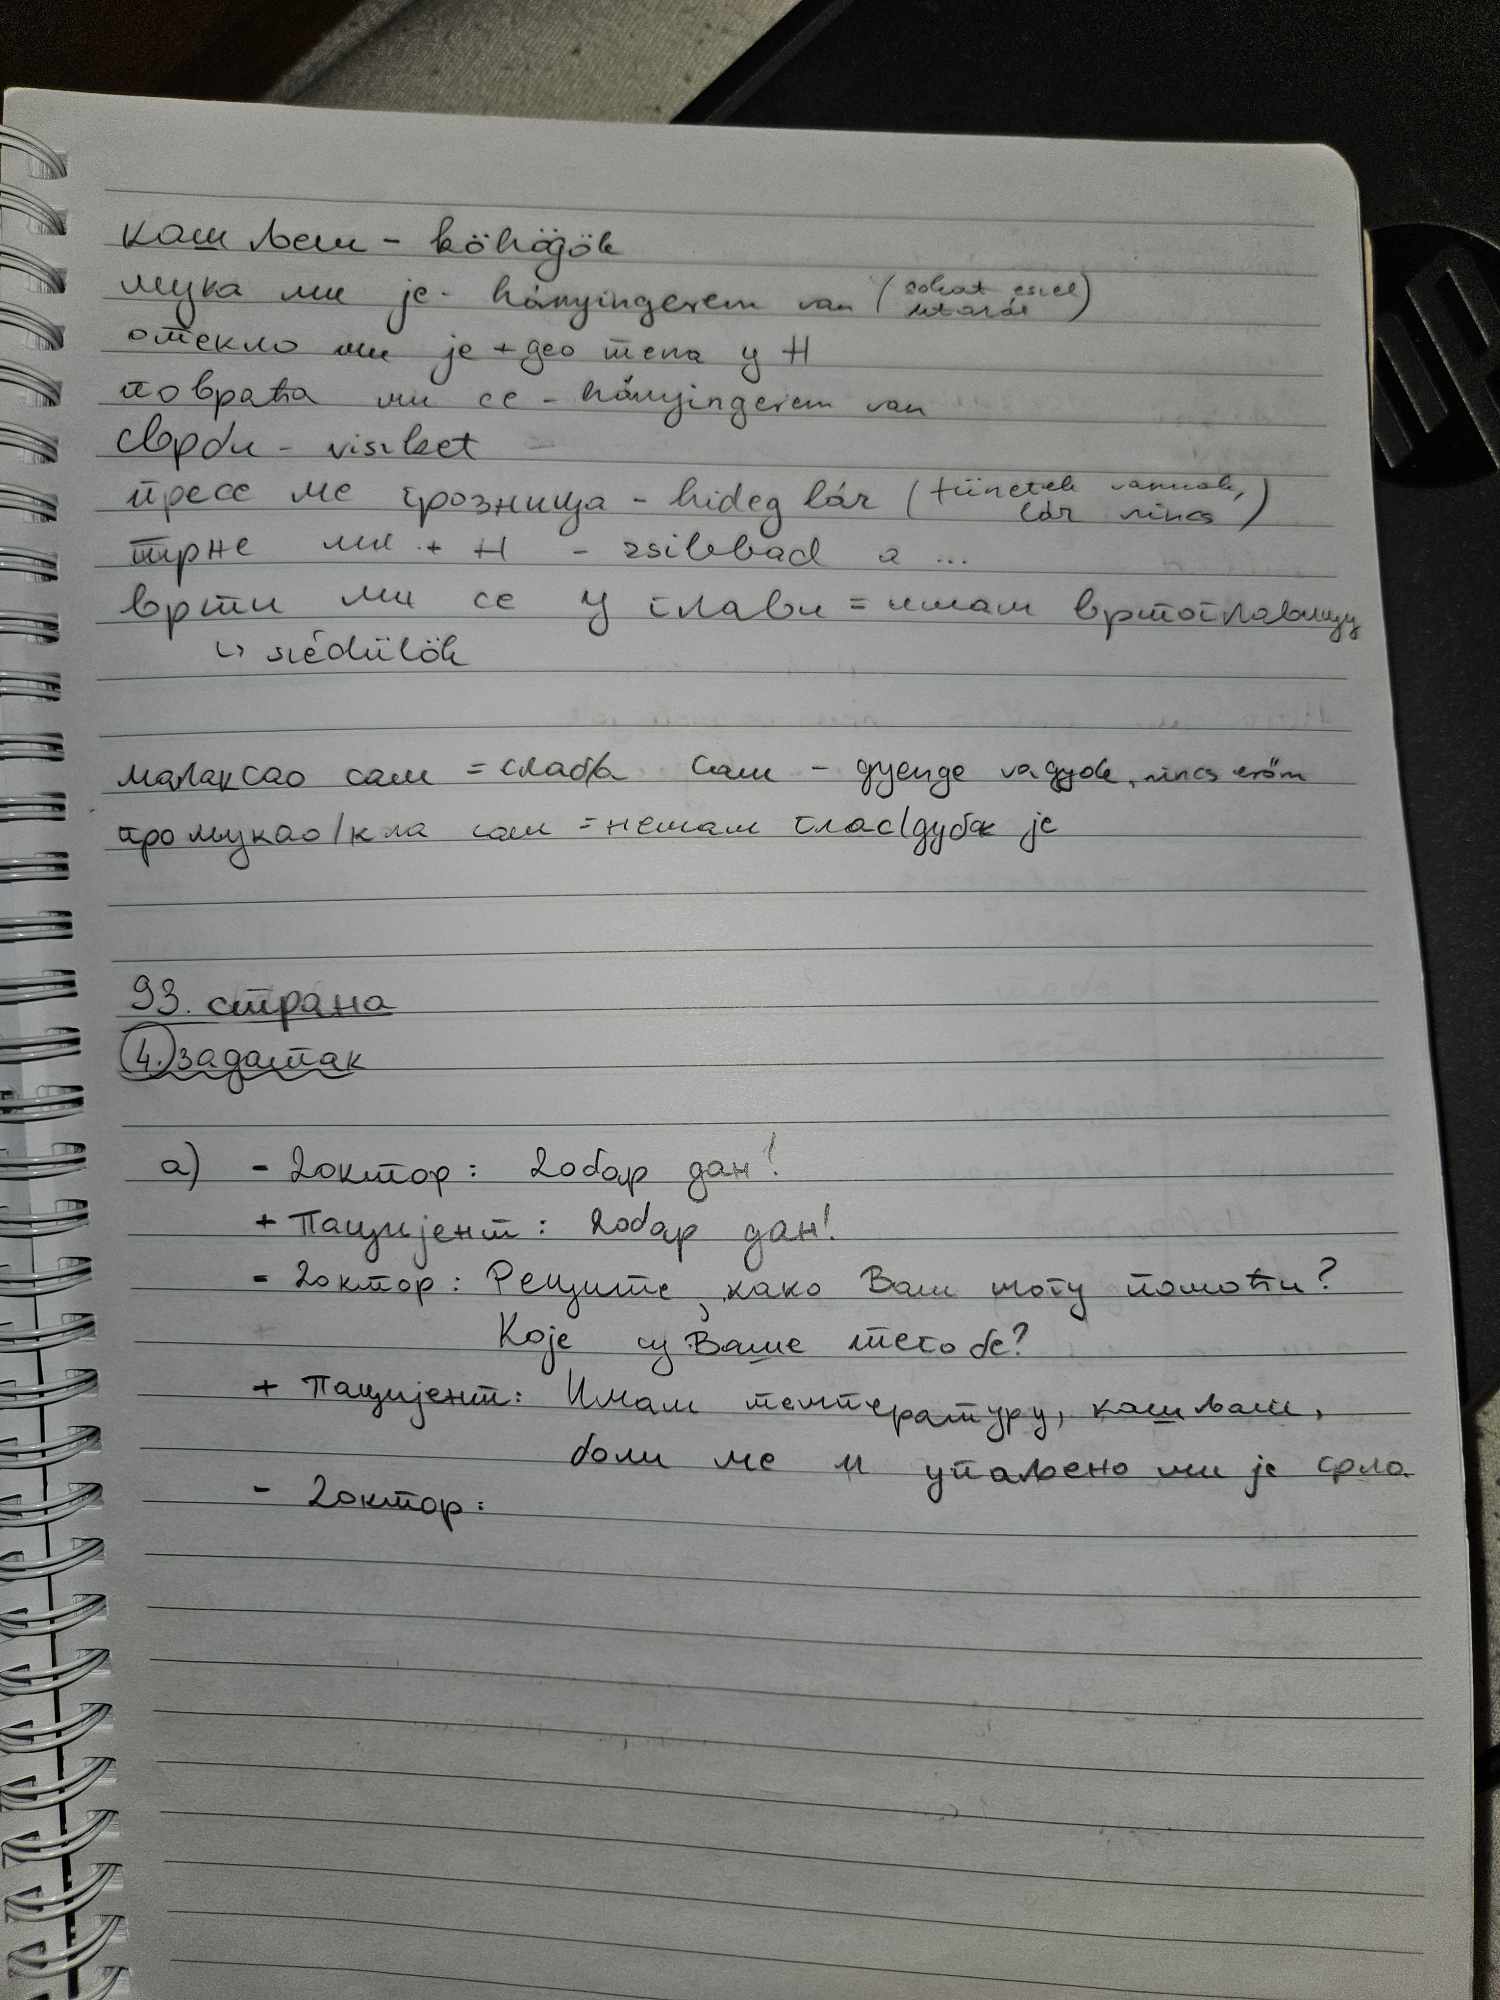 кашљеш - köhögök
мука ми је - hányingerem van (sokat eszel utána)
отекло ми је + део тела у Н
повраћа ми се - hányingerem van
сврби - viszket
тресе ме грозница - hideg láz (tünetek vannak, láz nincs)
трне ми + Н - zsibbad a ...
врти ми се у глави = имам вртоглавицу
↳ szédülök
малаксао сам = слаб/а сам - gyenge vagyok, nincs erőm
промукао/кла сам = немам глас/дубок је
93. страна
4. задатак
а) - Доктор: Добар дан!
+ Пацијент: Добар дан!
- Доктор: Реците, како Вам могу помоћи?
Које су Ваше тегобе?
+ Пацијент: Имам температуру, кашљам,
боли ме и упаљено ми је грло.
- Доктор:
hp